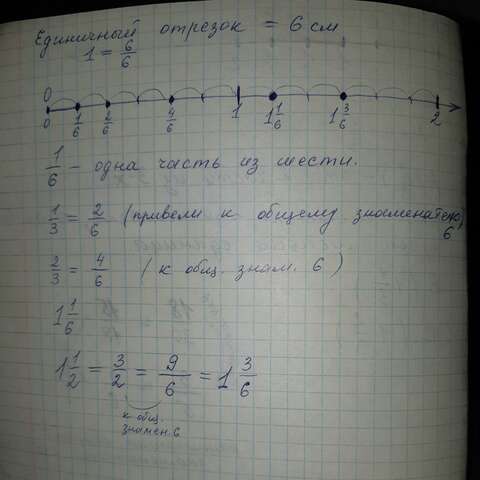 Единичный отрезок = 6 см
1 = 6/6
0
0 1/6 2/6 4/6 1 1 1/6 1 3/6 2
1/6 - одна часть из шести.
1/3 = 2/6 (привели к общему знаменателю)
6
2/3 = 4/6 (к общ. знам. 6)
1 1/6
1 1/2 = 3/2 = 9/6 = 1 3/6
к общ.
знамен. 6